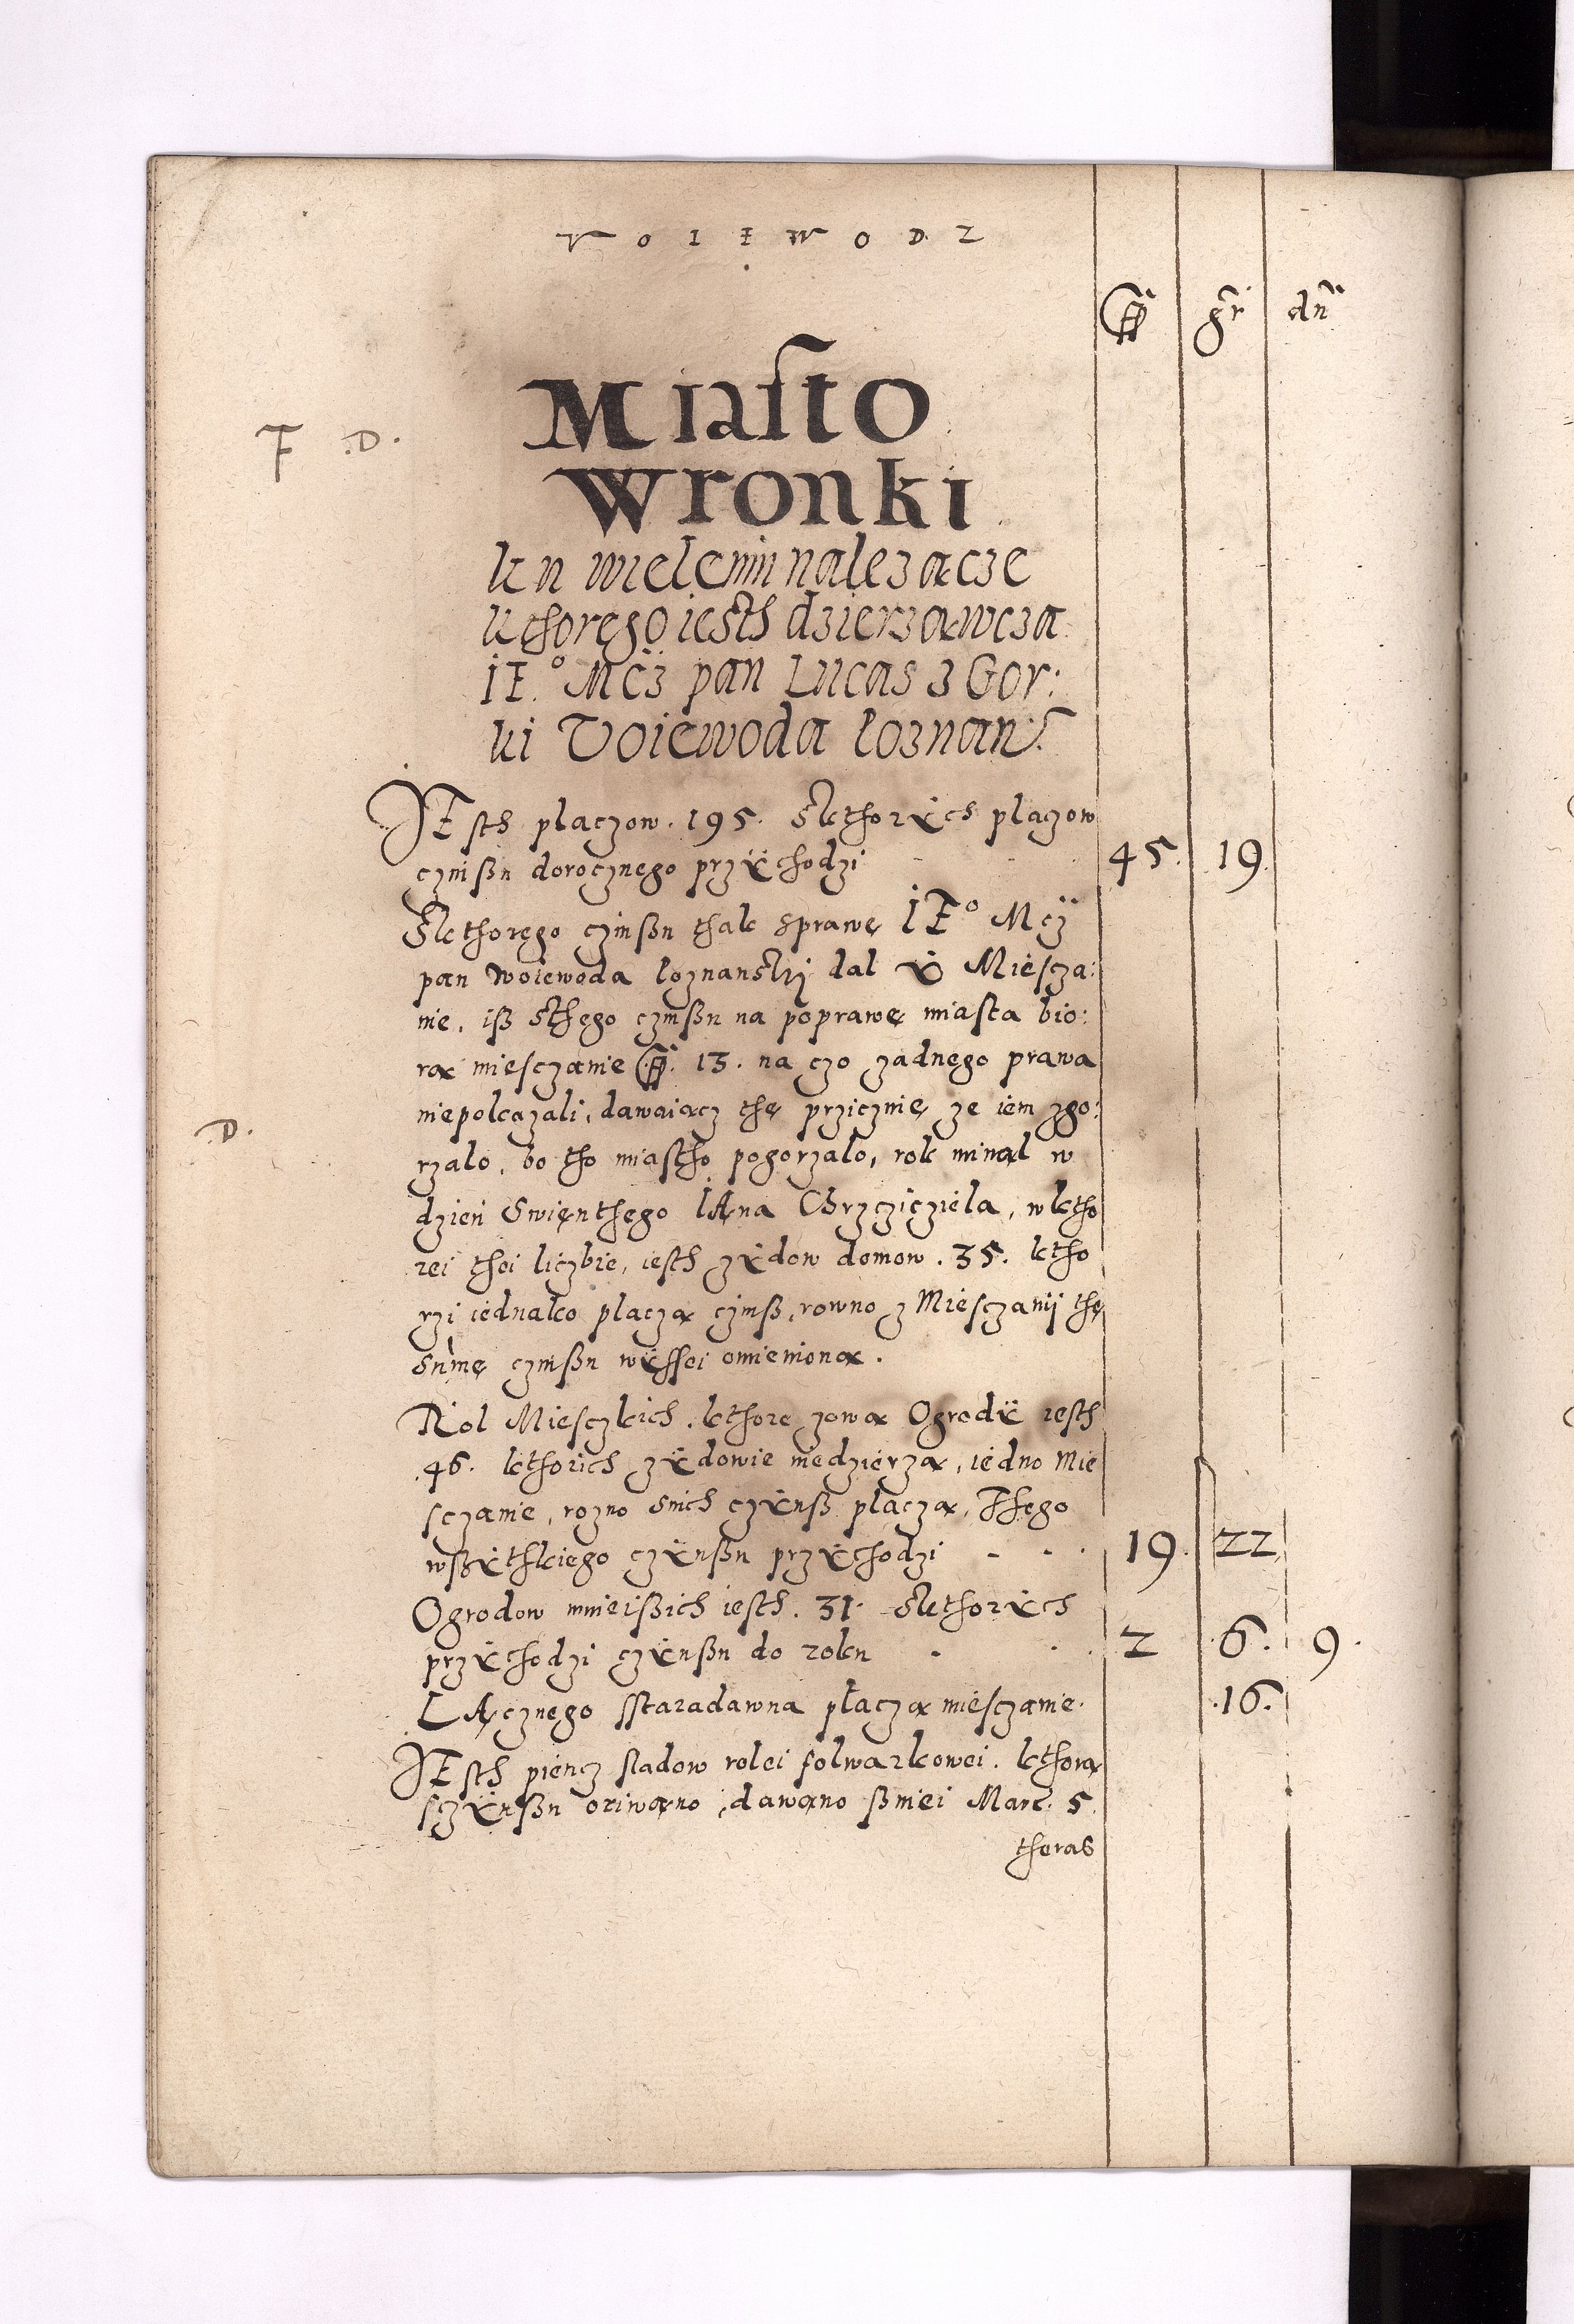 VOIEWODZ
gr̃ dñ
F .D.
Miasto
Wronki
ku wieleniu nalezącze
kthorego iesth dzierzawcza
IE.º Mcz pan Lucas z Gor:
ki Voiewoda Poznan:
IEsth placzow . 195 . Skthorÿch placzow
czinßu dorocznego przÿchodzi 45. 19.
Skthorego czinßu thak sprawę IEº Mcÿ
pan woiewoda poznanski dal ÿ Miescza:
nie, iß sthego czinßu na poprawę miasta bio:
rą miesczanie 13 . na czo zadnego prawa
niepokazali, dawaiącz thę przicznię ze iem zgo:
D.
rzalo, bo tho miastho pogorzalo, rok minąl w
dzień Swięnthego IAna Chrzcziciela, wktho
rei thei liczbie, iesth zÿdow domow . 35 . ktho
rzi iednako placzą czinß, rowno z Miesczanij thę
sumę czinßu wÿssei omienioną .
Rol Miesczkich . kthore zową Ogrodÿ iesth
.46. kthorich zÿdowie niedzierzą, iedno Mie
sczanie, rozno snich czÿnß placzą, Thego
wßÿthkiego czÿnßu przÿchodzi - - . 19. 22
Ogrodow mnieißich iesth . 31 . Skthorÿch
przÿchodzi czÿnßu do roku . . . 2 .6. 9.
LAcznego sstaradawna płaczą miesczanie . .16.
IEsth piencz sladow rolei folwarkowei . kthorą
sczÿnßu oriwano, dawano ßniei Marc. 5.
theras